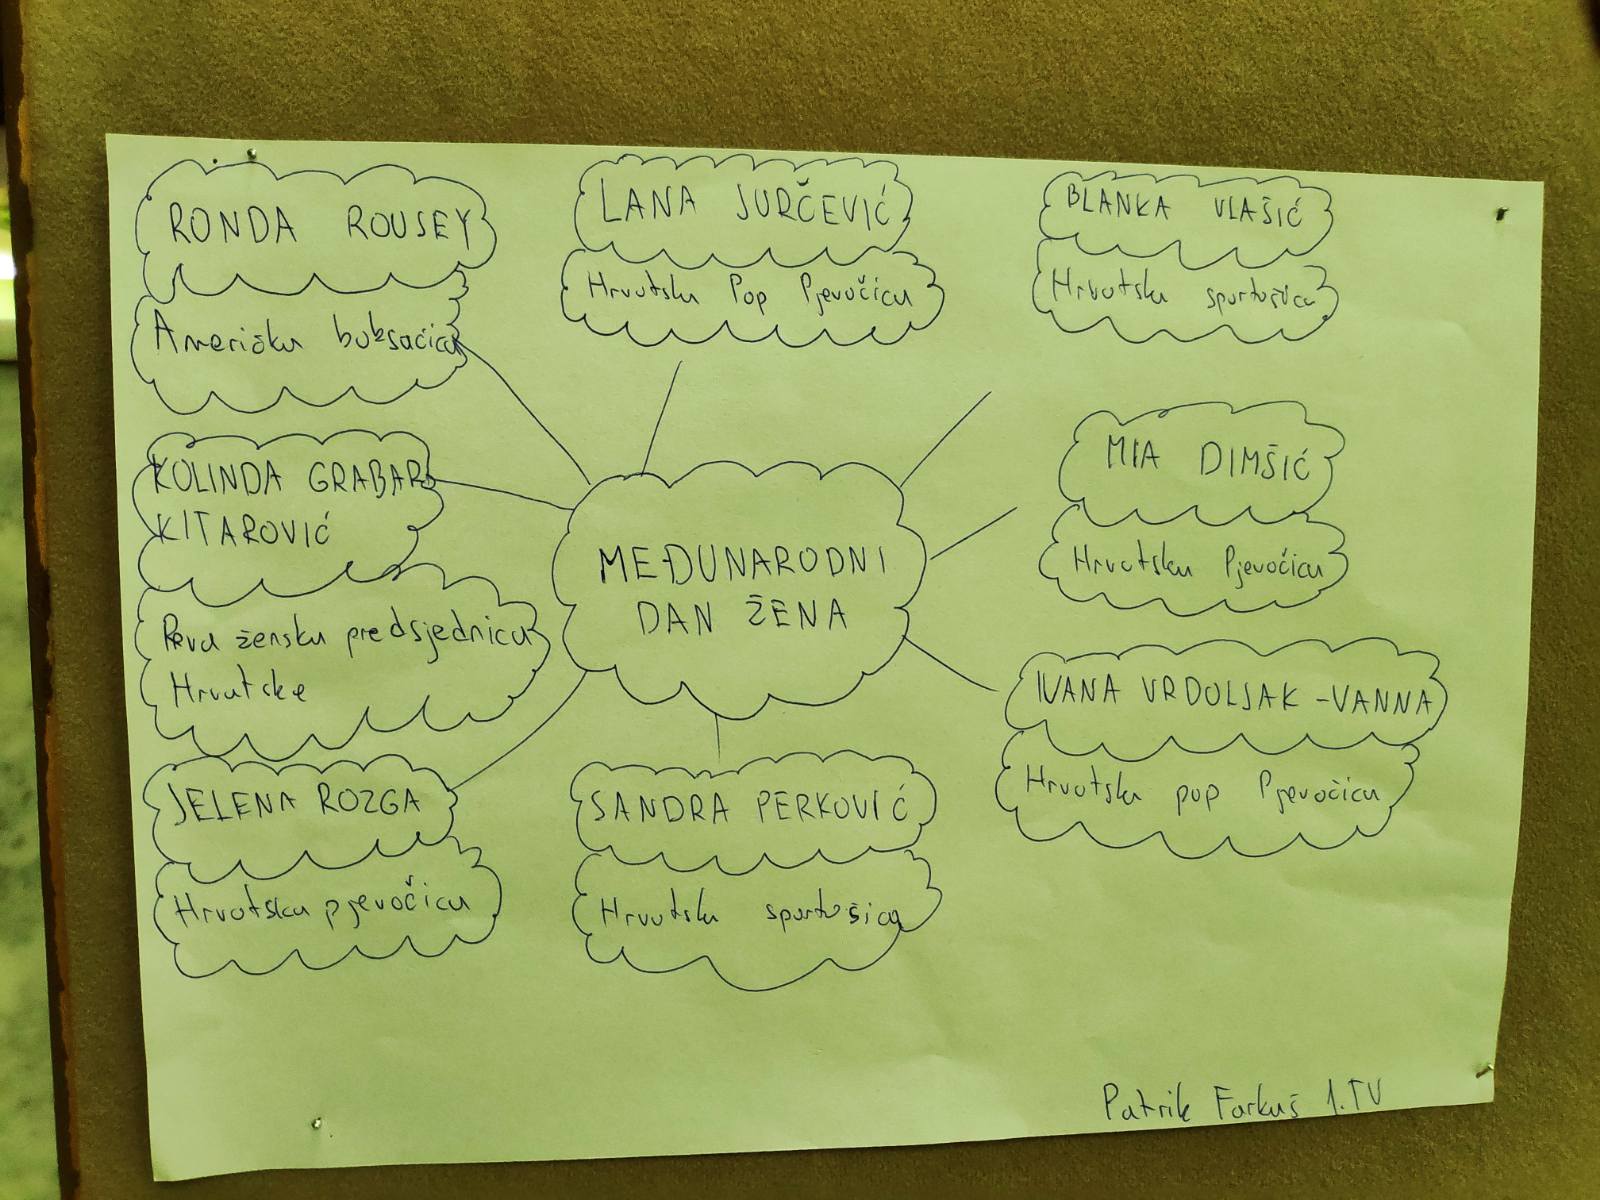 RONDA ROUSEY
Američka boksačica
LANA JURČEVIĆ
Hrvatska Pop Pjevačica
BLANKA VLAŠIĆ
Hrvatska sportašica
KOLINDA GRABAR
KITAROVIĆ
Prva ženska predsjednica
Hrvatske
MEĐUNARODNI
DAN ŽENA
MIA DIMŠIĆ
Hrvatska Pjevačica
IVANA VRDOLJAK -VANNA
Hrvatska pop Pjevačica
JELENA ROZGA
Hrvatska pjevačica
SANDRA PERKOVIĆ
Hrvatska sportašica
Patrik Farkaš 1.TV